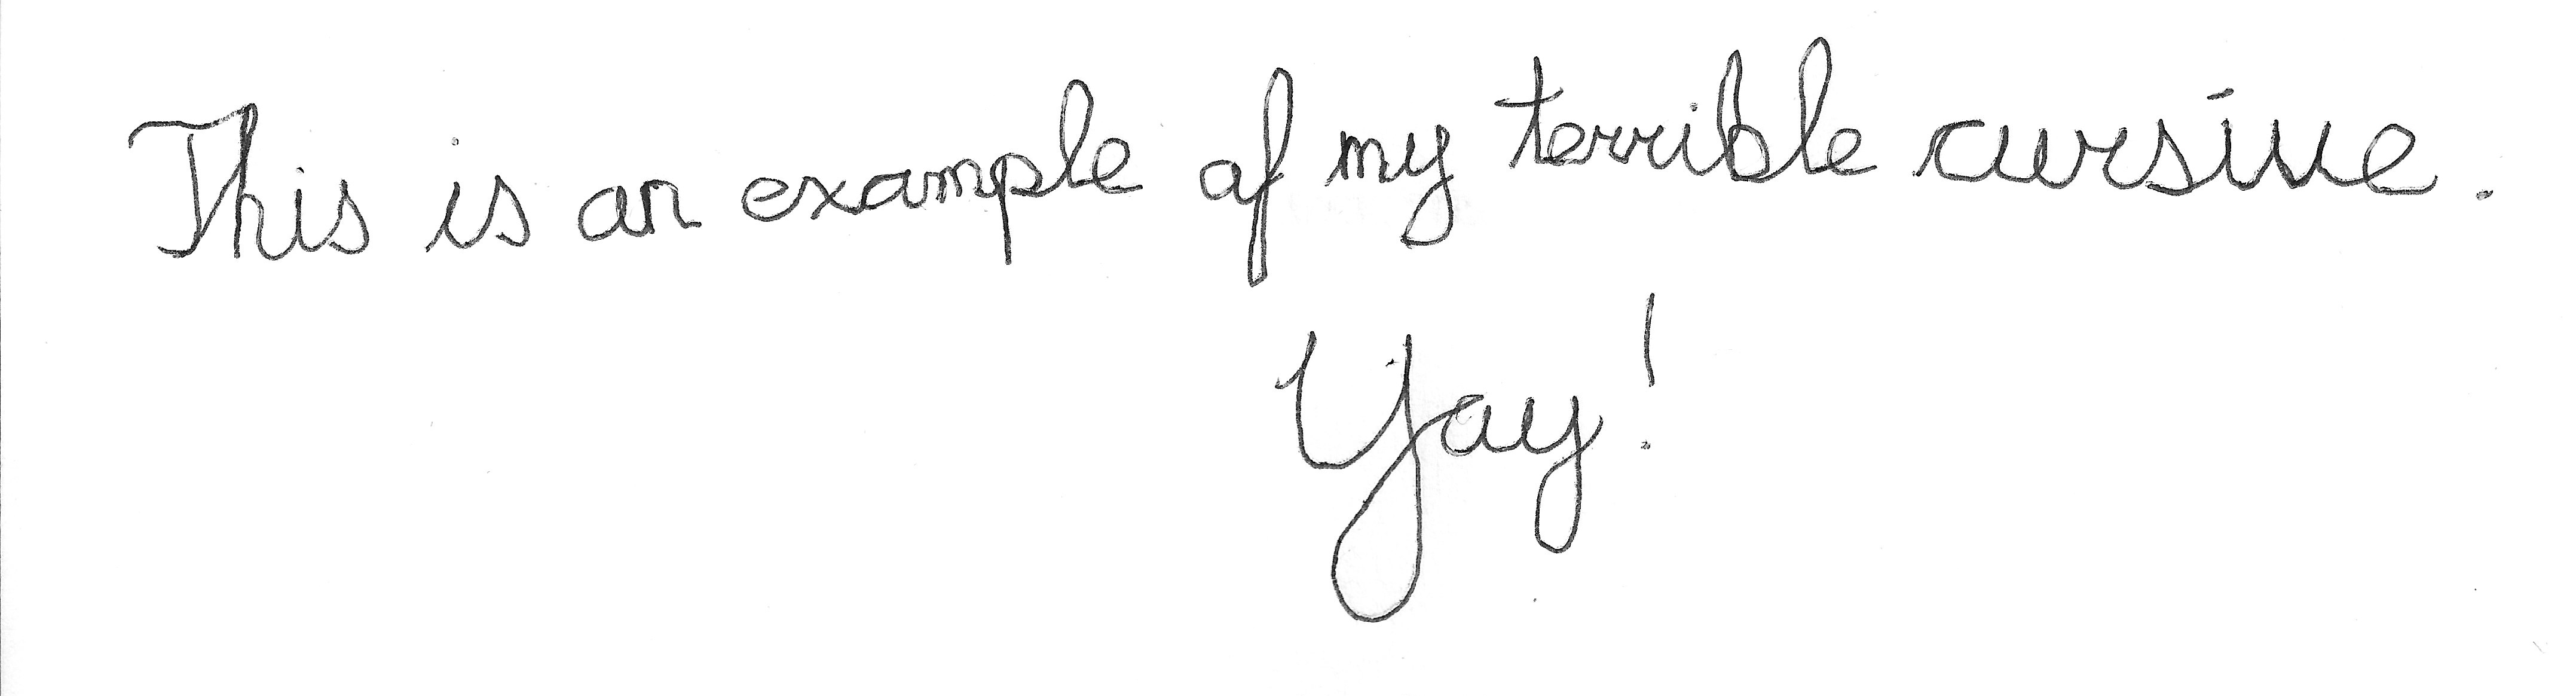 This is an example of my terrible cursive.
Yay!